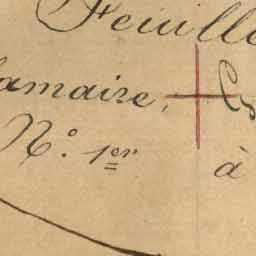 Feuille
lamaire,
N.º 1er à